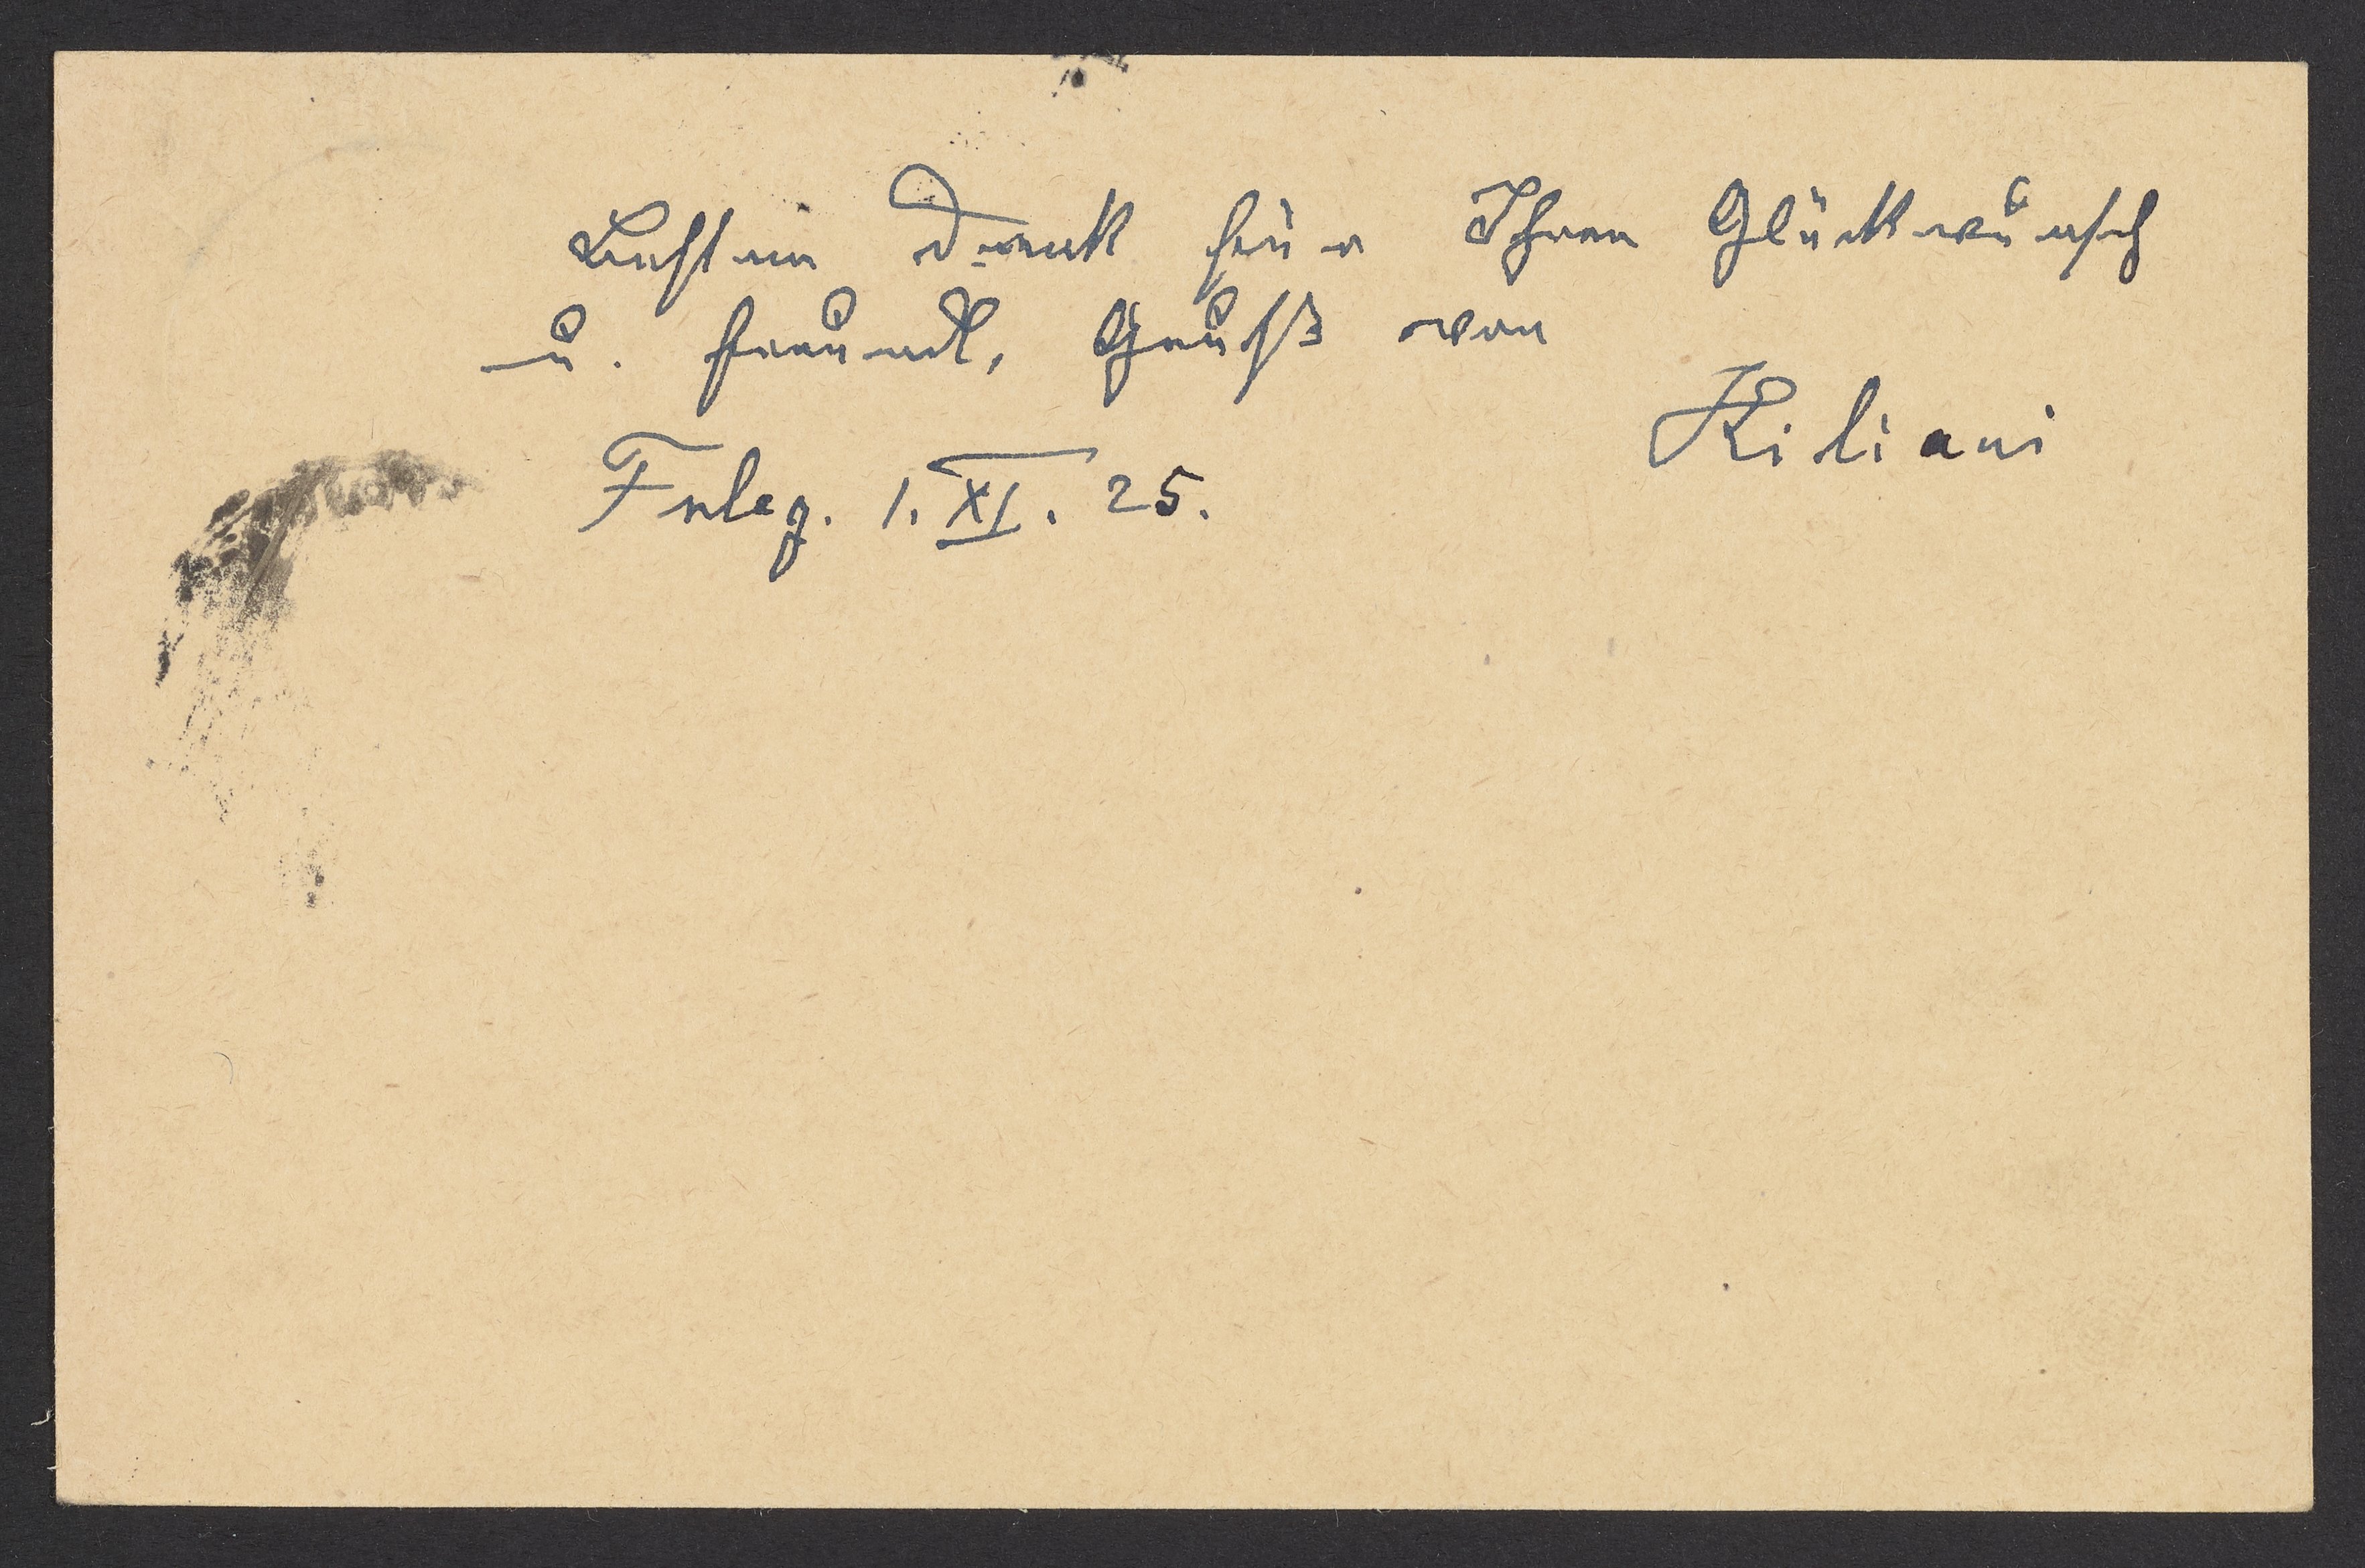 Besten Dank für Ihren Glückwunsch
u. freundl. Gruß von
Kiliani
Frbg. 1. XI. 25.